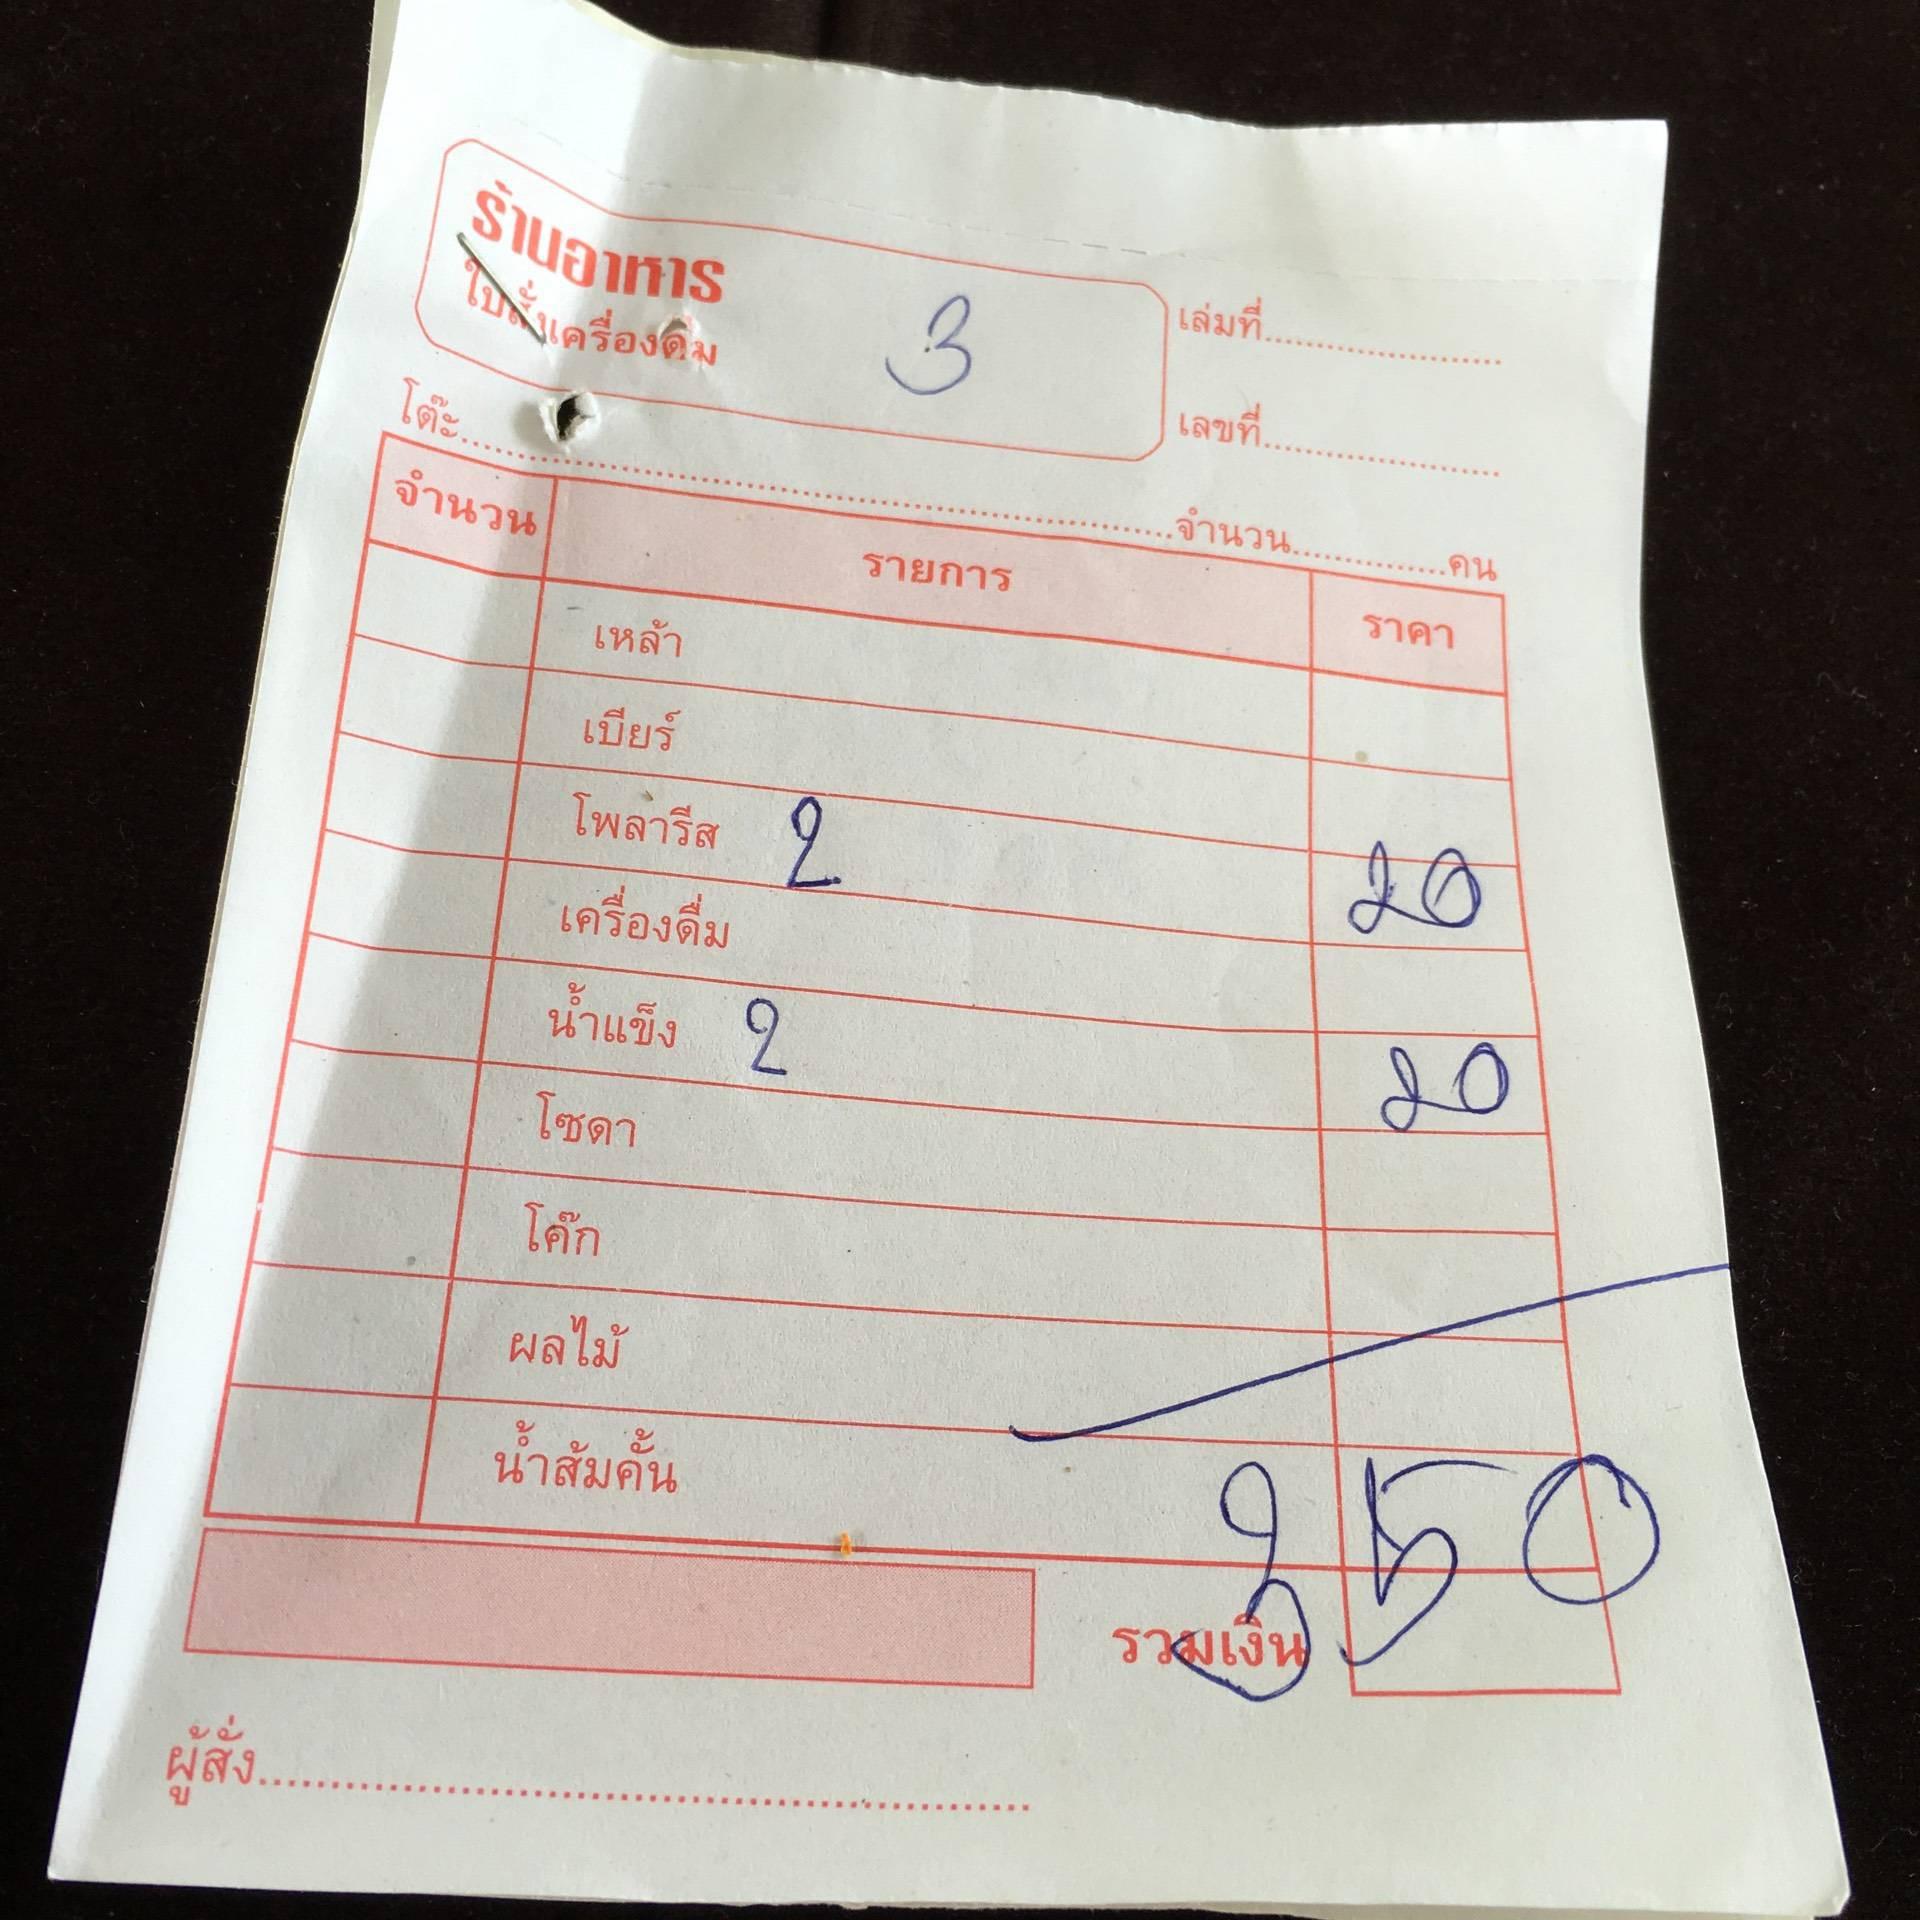 ร้านอาหาร
ใบสั่งเครื่องดื่ม
3
เล่มที่........................
เลขที่........................
โต๊ะ........................จำนวน...............คน
จำนวน รายการ ราคา
เหล้า
เบียร์
โพลารีส 2 20
เครื่องดื่ม
น้ำแข็ง 2 20
โซดา
โค๊ก
ผลไม้
น้ำส้มคั้น
รวมเงิน 350
ผู้สั่ง........................